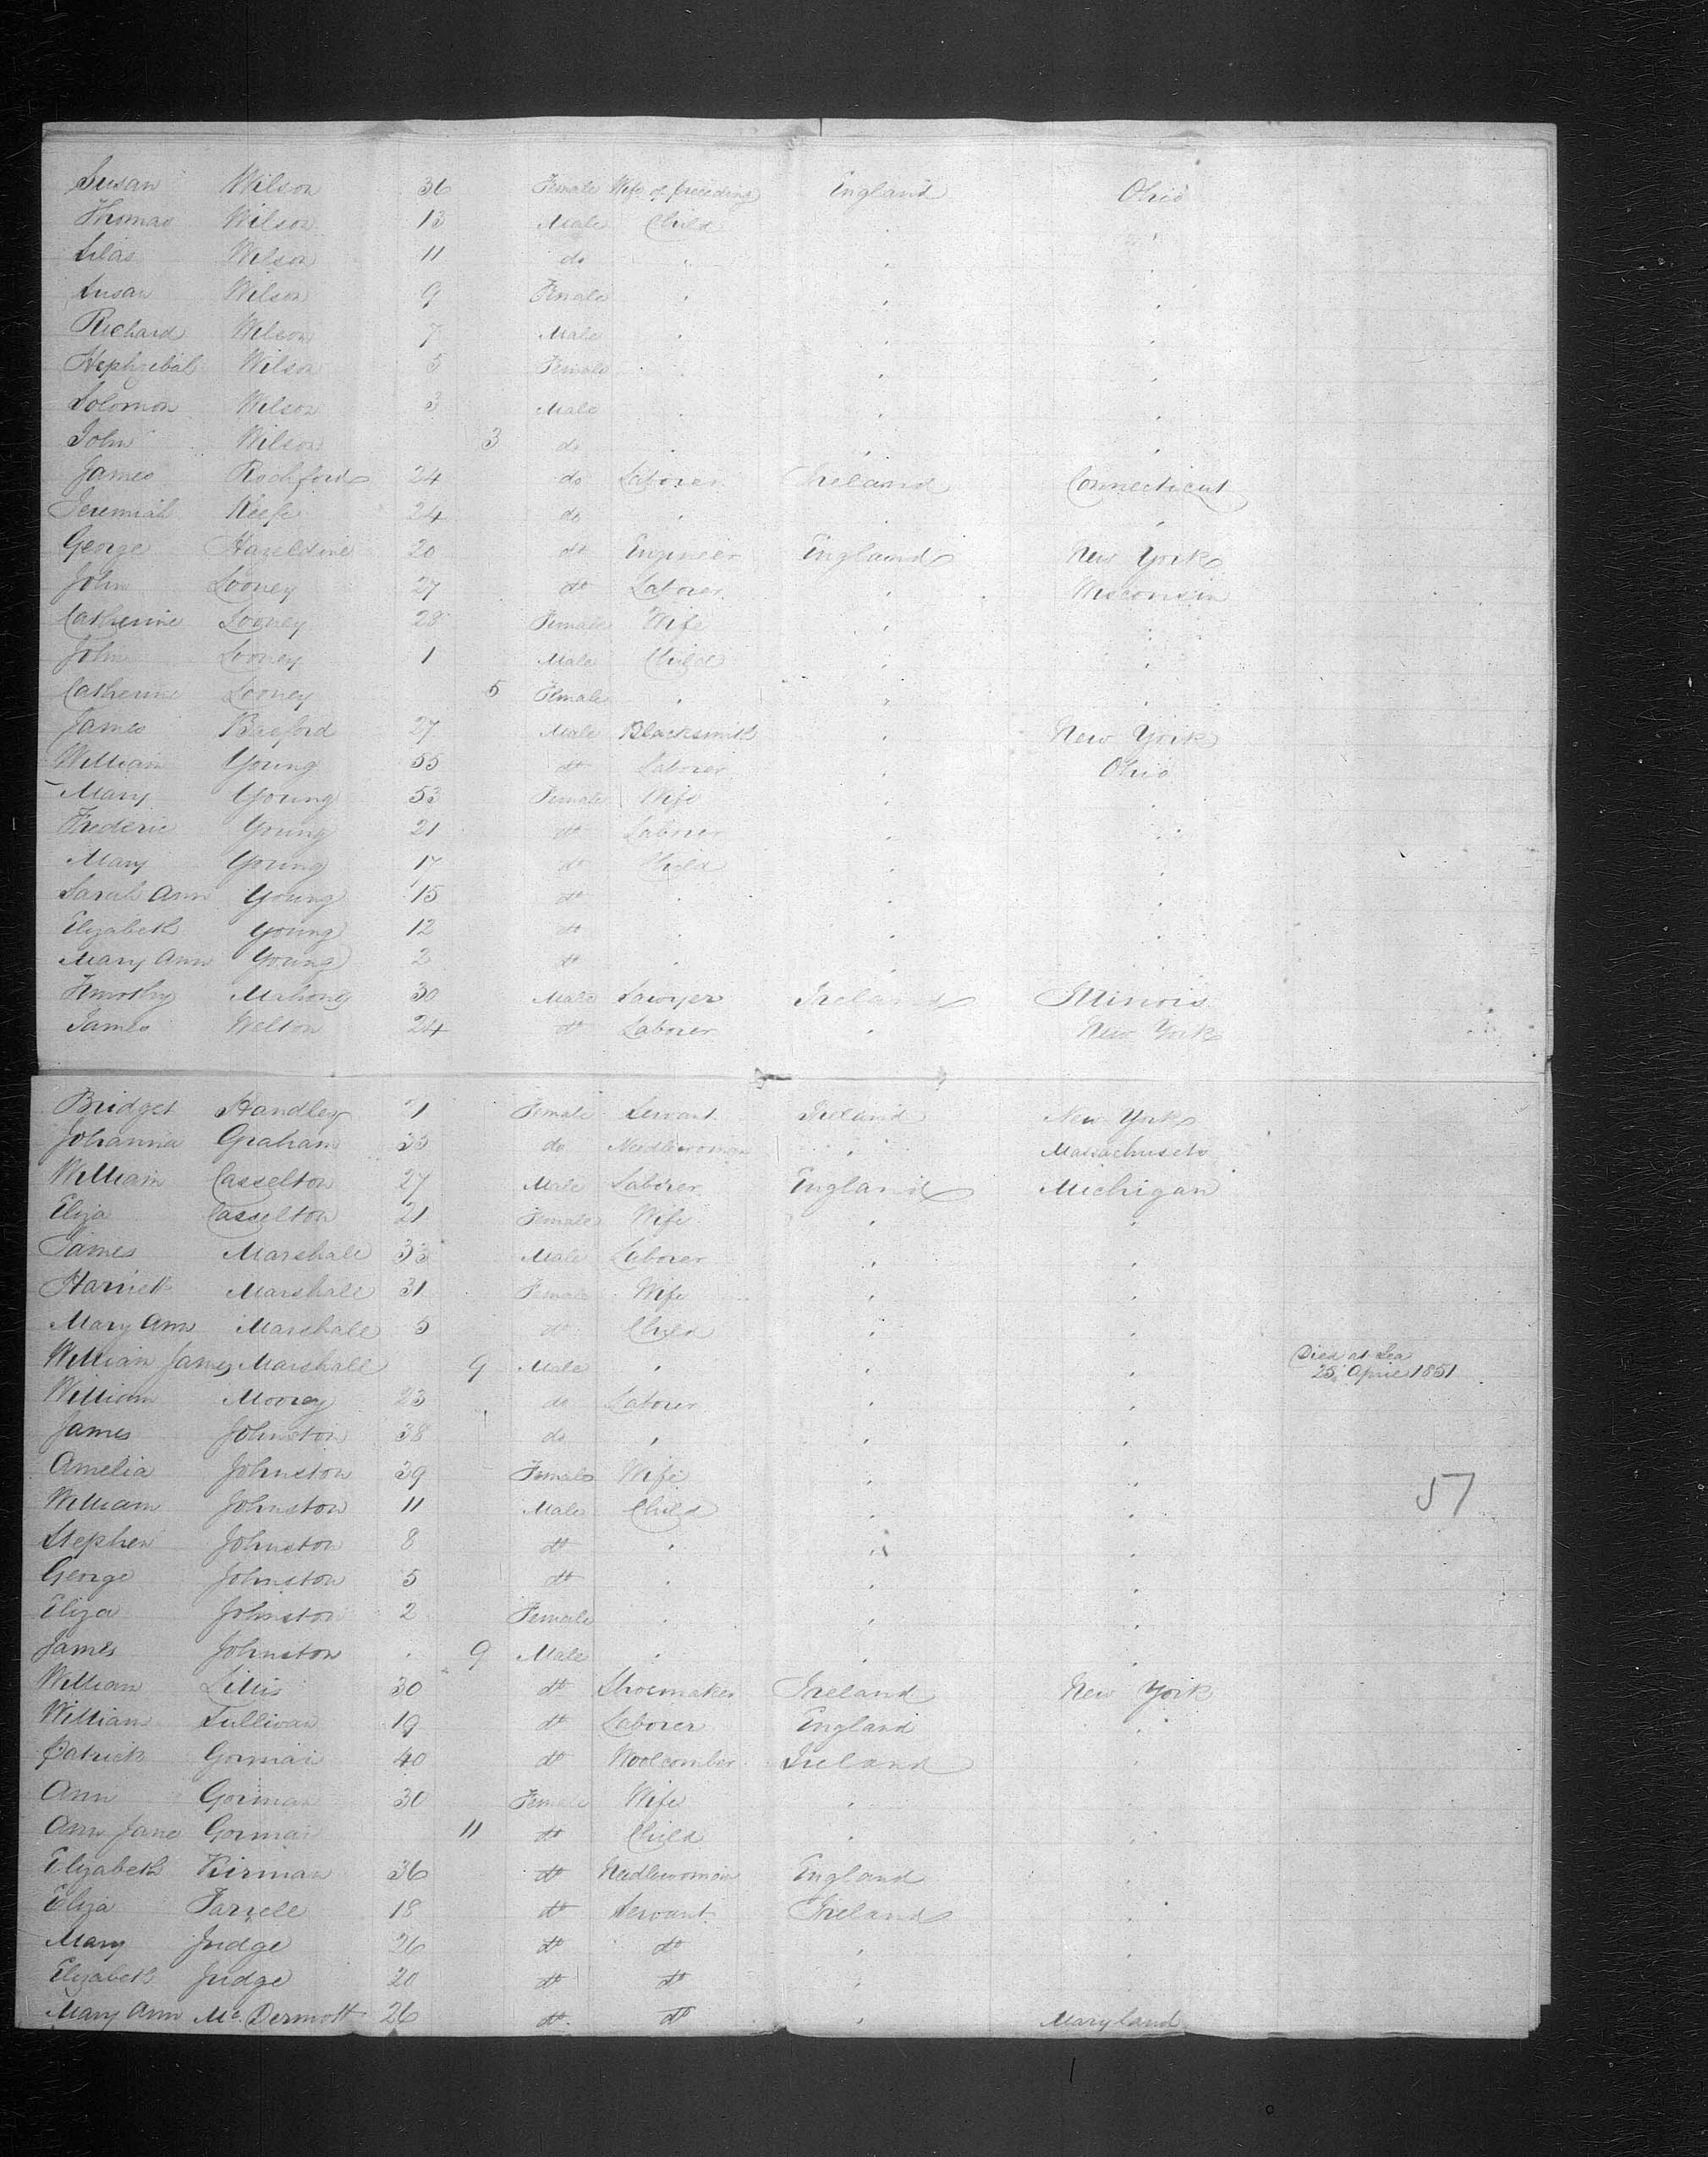 Susan Wilson 36 Female Wife of preceding England Ohio
Thomas Wilson 13 Male Child " "
Silas Wilson 11 do " " "
Susan Wilson 9 Female " " "
Richard Wilson 7 Male " " "
Hephzibah Wilson 5 Female " " "
Solomon Wilson 3 Male " " "
John Wilson 3 do " " "
James Rochford 24 do Laborer Ireland Connecticut
Jeremiah Keefe 24 do " " "
George Hazeldine 20 do Engineer England New York
John Looney 27 do Laborer " Wisconsin
Catherine Looney 28 Female Wife " "
John Looney 1 Male Child " "
Catherine Looney 5 Female " " "
James Basford 27 Male Blacksmith " New York
William Young 55 do Laborer " Ohio
Mary Young 53 Female Wife " "
Frederic Young 21 do Laborer " "
Mary Young 17 do Child " "
Sarah Ann Young 15 do " " "
Elizabeth Young 12 do " " "
Mary Ann Young 2 do " " "
Timothy Mahony 30 Male Sawyer Ireland Illinois
James Welton 24 do Laborer " New York
Bridget Handley 21 Female Servant Ireland New York
Johanna Graham 35 do Needlewoman " Massachusets
William Casselton 27 Male Laborer England Michigan
Eliza Casselton 21 Female Wife " "
James Marshall 33 Male Laborer " "
Harriett Marshall 31 Female Wife " "
Mary Ann Marshall 3 do Child " "
William James Marshall 9 Male " " " Died at Sea 25 April 1851
William Moorey 23 do Laborer " "
James Johnston 38 do " " "
Amelia Johnston 39 Female Wife " "
William Johnston 11 Male Child " "
57
Stephen Johnston 8 do " " "
George Johnston 5 do " " "
Eliza Johnston 2 Female " " "
James Johnston 9 Male " " "
William Lillis 30 do Shoemaker Ireland New York
William Sullivan 19 do Laborer England "
Patrick Gorman 40 do Woolcomber Ireland "
Ann Gorman 30 Female Wife " "
Ann Jane Gorman 11 do Child " "
Elizabeth Kirman 36 do Needlewoman England "
Eliza Farrell 18 do Servant Ireland "
Mary Judge 26 do do " "
Elizabeth Judge 20 do do " "
Mary Ann McDermott 26 do do " Maryland